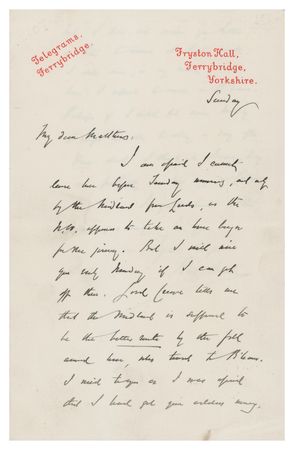 Telegrams,
Ferrybridge.
Fryston Hall,
Ferrybridge,
Yorkshire.
Sunday
My dear Matthews.
I am afraid I cannot
leave here before Tuesday morning, and
by the Midland from Leeds, as the
N.W. appears to take an hour longer
for the journey. But I will wire
you early Monday if I can get
off then. Lord Crewe tells me
that the Midland is supposed to
be the better route by the folk
round here, who travel to
I wired to you as I was afraid
that I had got your address wrong.